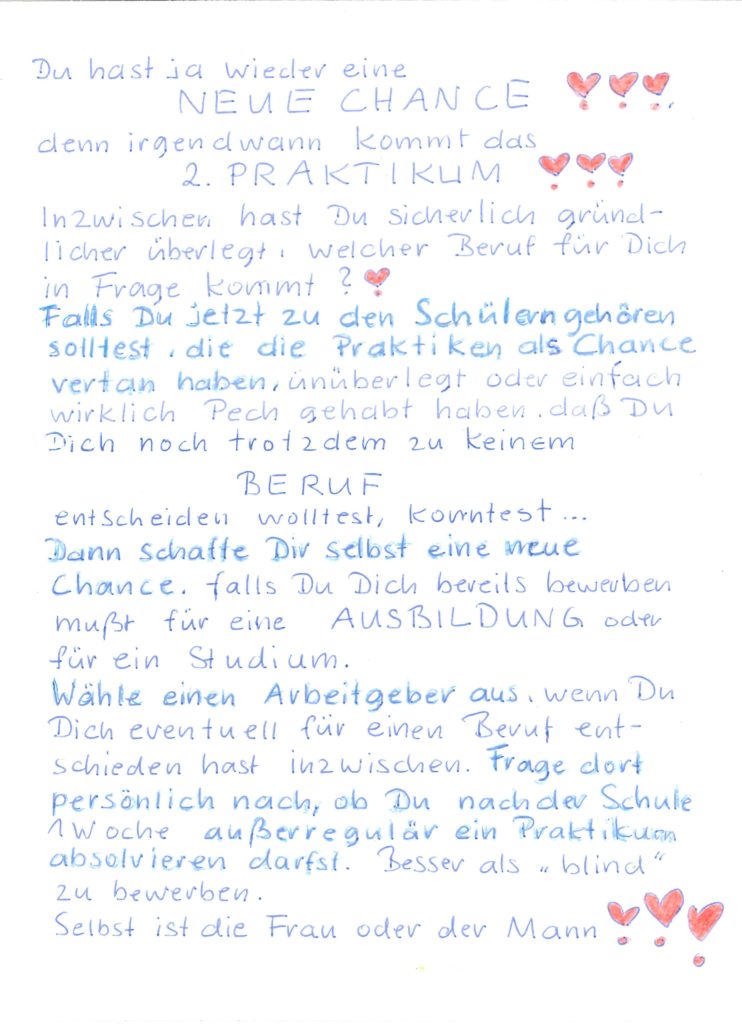 Du hast ja wieder eine
NEUE CHANCE
denn irgendwann kommt das
2. PRAKTIKUM
Inzwischen hast Du sicherlich gründ-
licher überlegt, welcher Beruf für Dich
in Frage kommt?
Falls Du jetzt zu den Schülern gehören
solltest, die die Praktiken als Chance
vertan haben, unüberlegt oder einfach
wirklich Pech gehabt haben, daß Du
Dich noch trotzdem zu keinem
BERUF
entscheiden wolltest, konntest...
Dann schaffe Dir selbst eine neue
Chance, falls Du Dich bereits bewerben
mußt für eine AUSBILDUNG oder
für ein Studium.
Wähle einen Arbeitgeber aus, wenn Du
Dich eventuell für einen Beruf ent-
schieden hast inzwischen. Frage dort
persönlich nach, ob Du nach der Schule
1 Woche außerregulär ein Praktikum
absolvieren darfst. Besser als „blind“
zu bewerben.
Selbst ist die Frau oder der Mann